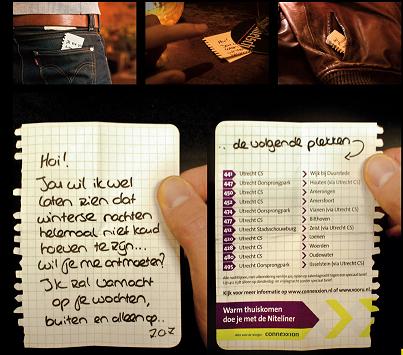 Hoi!
Jou wil ik wel
laten zien dat
winterse nachten
helemaal niet koud
hoeven te zijn...
wil je me ontmoeten?
Ik zal vannacht
op je wachten,
buiten en alleen op..
z.o.z
.. de volgende plekken
441 Utrecht CS > Wijk bij Duurstede
447 Utrecht Oorsprongpark > Houten (via Utrecht CS)
450 Utrecht CS > Amerongen
452 Utrecht CS > Amersfoort
474 Utrecht Oorsprongpark > Vianen (via Utrecht CS)
477 Utrecht CS > Bilthoven
412 Utrecht Stadsschouwburg > Zeist (via Utrecht CS)
420 Utrecht CS > Loenen
428 Utrecht CS > Woerden
480 Utrecht CS > Oudewater
495 Utrecht Oorsprongpark > IJsselstein (via Utrecht CS)
Kijk voor meer informatie op www.connexxion.nl of
Warm thuiskomen
doe je met de Niteliner
connexxion